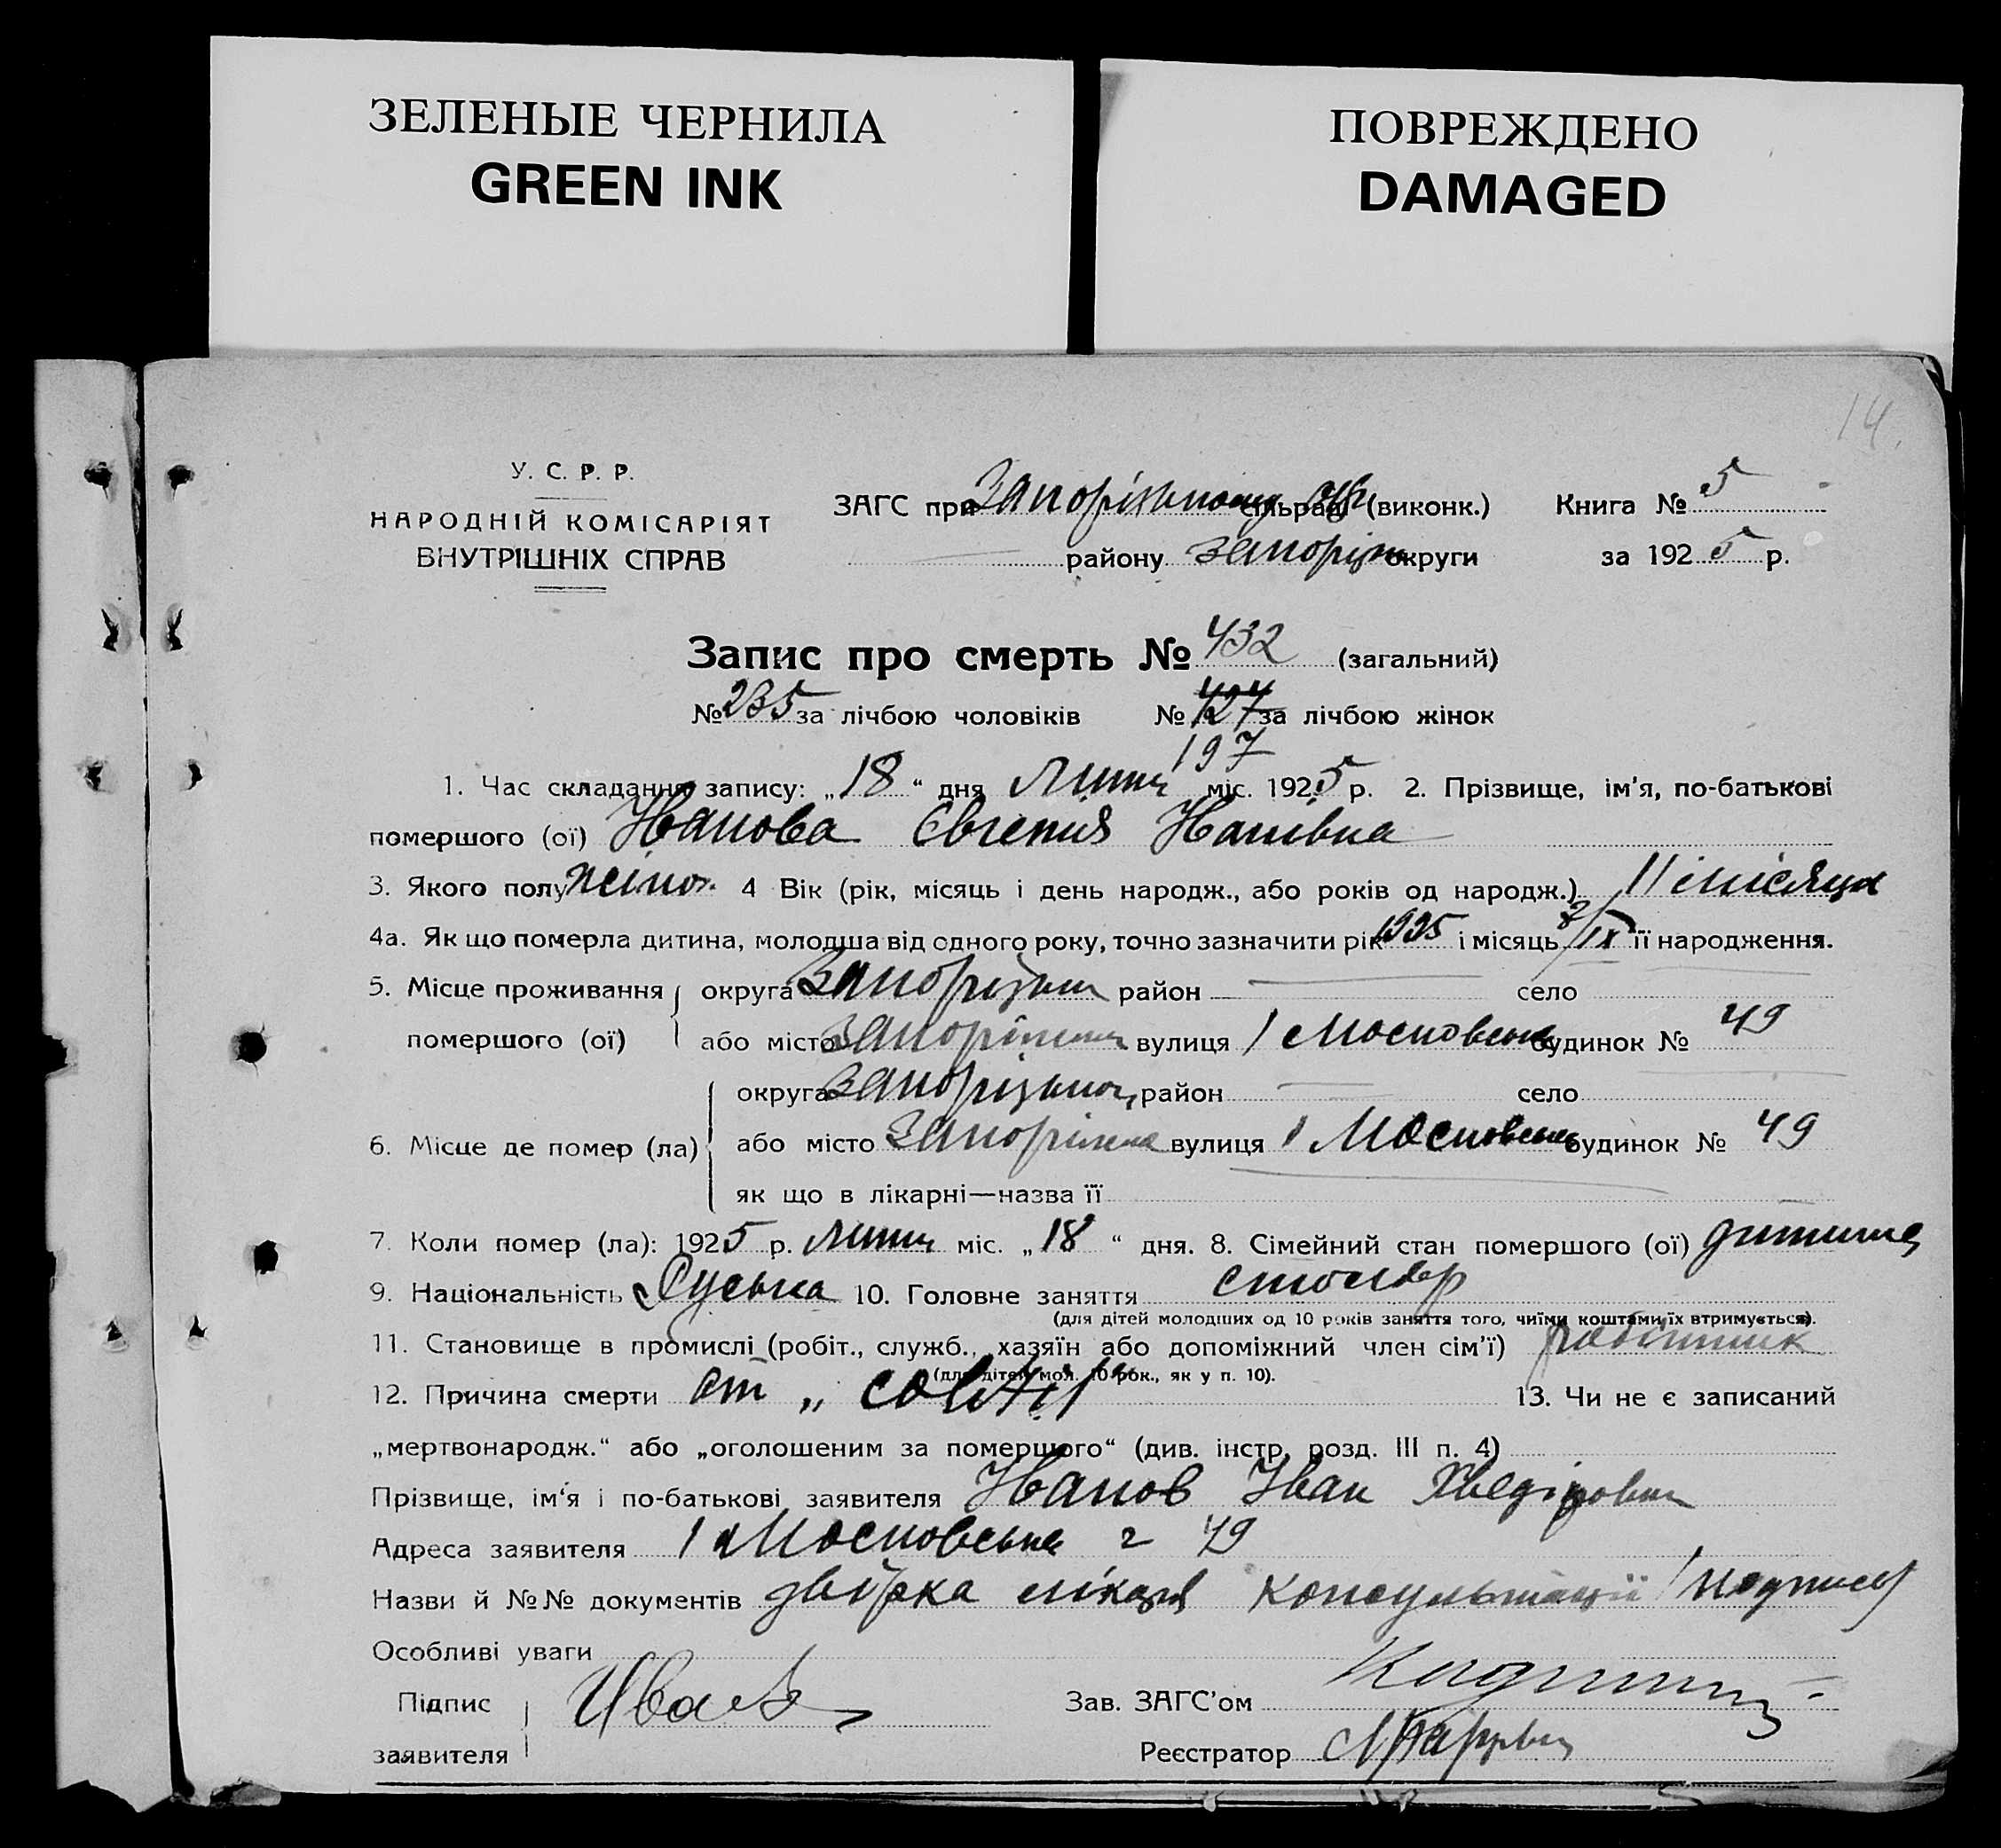 ЗЕЛЕНЫЕ ЧЕРНИЛА
GREEN INK
ПОВРЕЖДЕНО
DAMAGED
14.
У. С. Р. Р.
НАРОДНІЙ КОМІСАРІЯТ
ВНУТРІШНІХ СПРАВ
ЗАГС при сільраді (виконк.) Книга № 5
району Запоріз округи за 1925 р.
Запис про смерть № 432 (загальний)
№ 235 за лічбою чоловіків № 427 за лічбою жінок
197
1. Час складання запису: „18“ дня Липня міс. 1925 р. 2. Прізвище, ім'я, по-батькові
помершого (ої) Іванова Євгенія Іванівна
3. Якого полу жіноч. 4 Вік (рік, місяць і день народж., або років од народж.) 11 місяців
4а. Як що померла дитина, молодша від одного року, точно зазначити рік і місяць 2/IX її народження.
5. Місце проживання округа Запорізька район село
помершого (ої) або місто Запоріжжя вулиця 1 Московська будинок № 49
округа Запорізька район село
6. Місце де помер (ла) або місто Запоріжжя вулиця 1 Московська будинок № 49
як що в лікарні—назва її
7. Коли помер (ла): 1925 р. липня міс. „18“ дня. 8. Сімейний стан помершого (ої) дитина
9. Національність Руська 10. Головне заняття столяр
(для дітей молодших од 10 років заняття того, чиїми коштами їх втримується).
11. Становище в промислі (робіт., служб., хазяїн або допоміжний член сім'ї) робітник
(для дітей мол. 10 рок., як у п. 10).
12. Причина смерти от „ 13. Чи не є записаний
„мертвонародж.“ або „оголошеним за помершого“ (див. інстр. розд. III п. 4)
Прізвище, ім'я і по-батькові заявителя Іванов Іван Хведірович
Адреса заявителя 1 Московська 49
Назви й №№ документів довідка лікаря консультації
Особливі уваги
Підпис
заявителя Иванов
Зав. ЗАГС'ом
Реєстратор